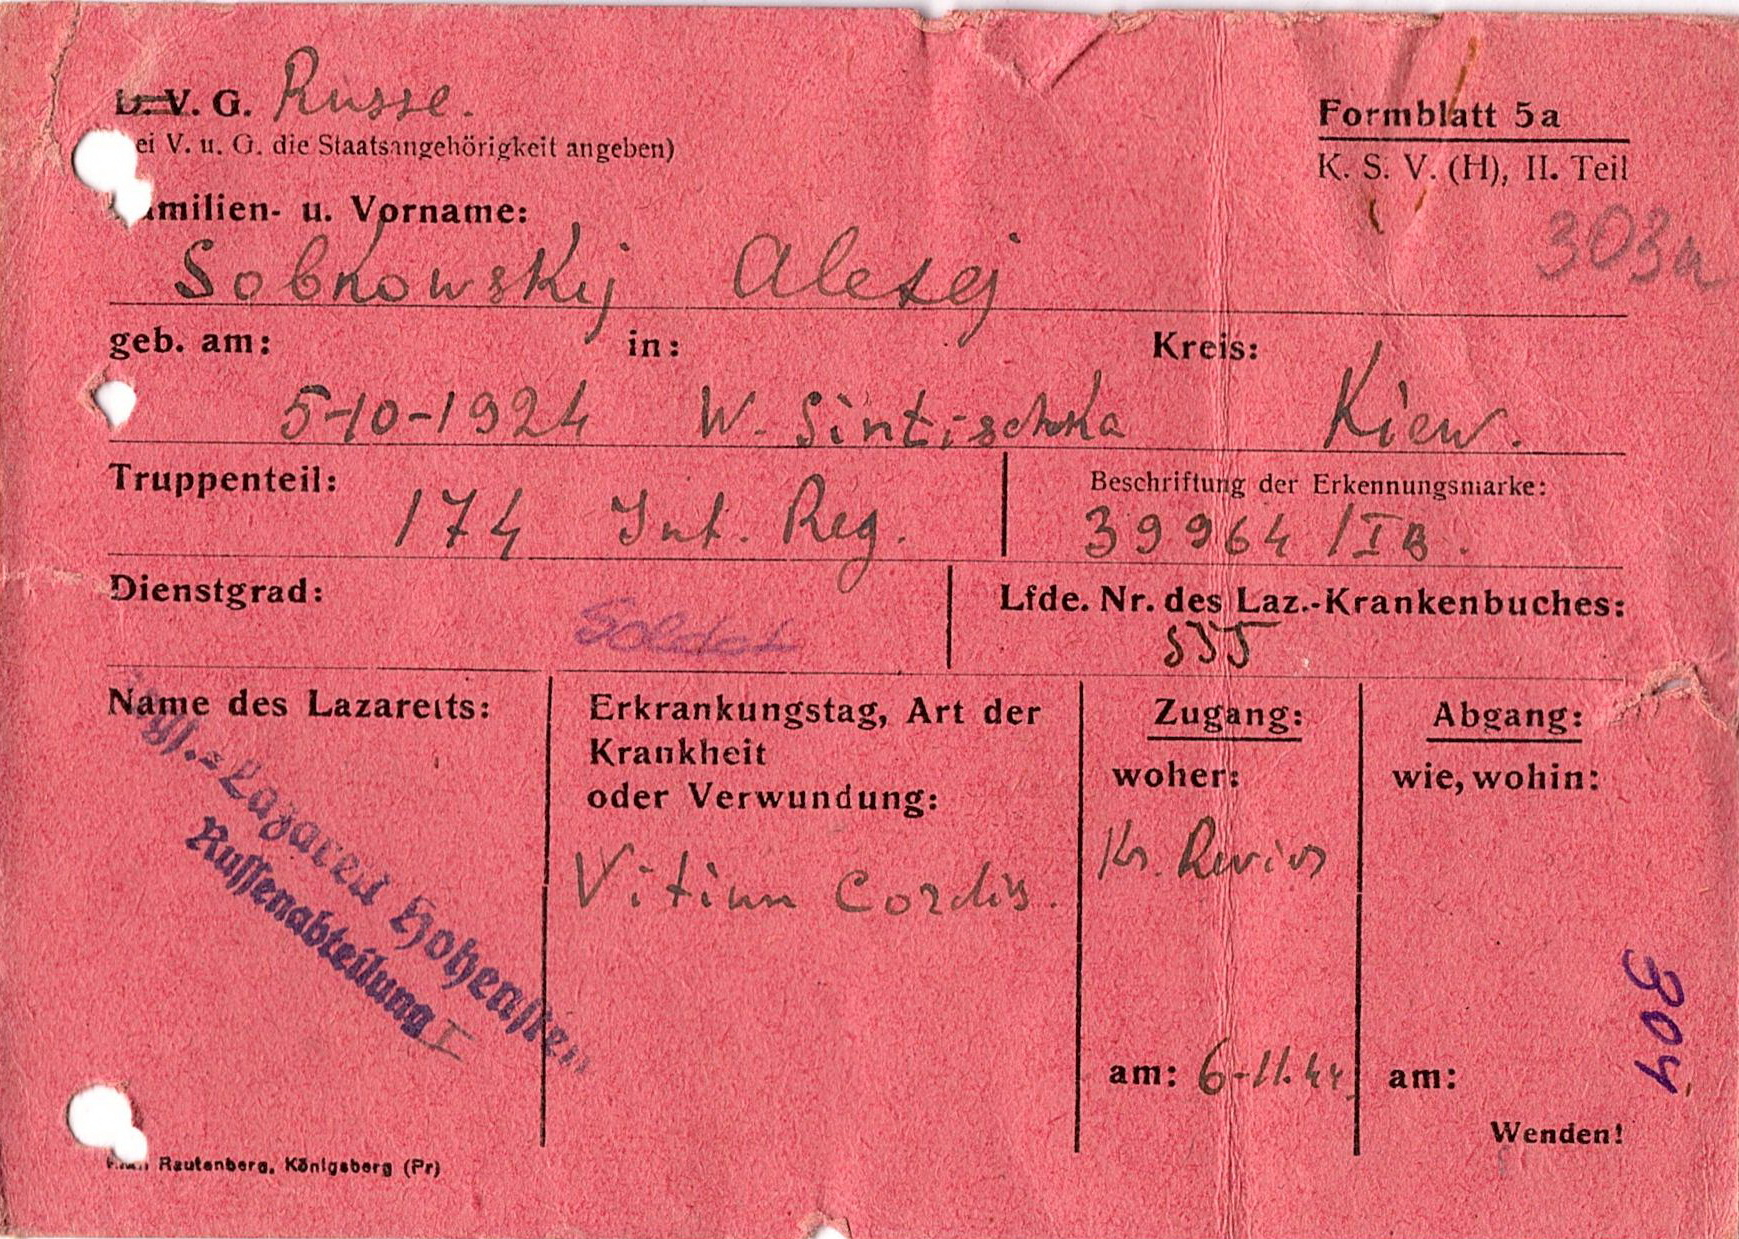 D. V. G. Russe.
ei V. u. G. die Staatsangehörigkeit angeben)
Formblatt 5a
K. S. V. (H), II. Teil
303a
amilien- u. Vorname:
Sobkowskij Alexej
geb. am: in: Kreis:
5-10-1924 W. Sintischka Kiew.
Truppenteil: Beschriftung der Erkennungsmarke:
174 Inf. Reg. 39964/IB.
Dienstgrad: Lfde. Nr. des Laz.-Krankenbuches:
Soldat 555
Name des Lazaretts: Erkrankungstag, Art der Krankheit oder Verwundung: Zugang: Abgang:
woher: wie, wohin:
Kr. Revier
Vitium Cordis.
Lazarett Hohenstein
Russenabteilung I
304
am: 6-11.44 am:
Wenden!
Rautenberg, Königsberg (Pr)